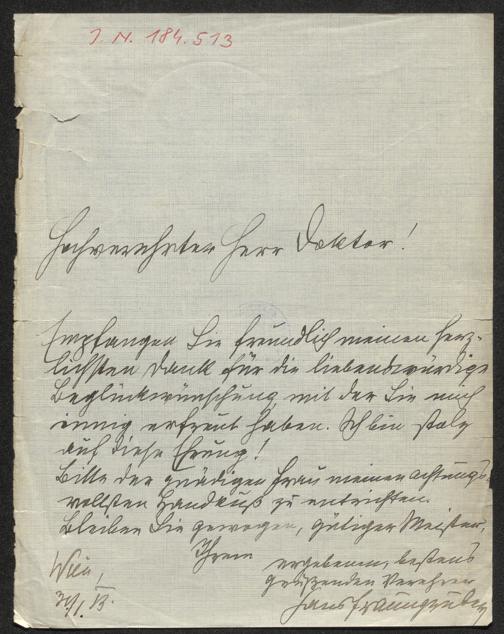 J. N. 184.513
Hochverehrter Herr Doktor!
Empfangen Sie freundlich meinen herz-
lichsten Dank für die liebenswürdige
Beglückwünschung mit der Sie mich
innig erfreut haben. Ich bin stolz
auf diese Ehrung!
Bitte der gnädigen Frau meinen achtungs-
vollsten Handkuß zu entrichten.
Bleiben Sie gewogen, gütiger Meister,
Ihrem
ergebenen, bestens
grüßenden Verehrer
Hans Fraungruber
Wien,